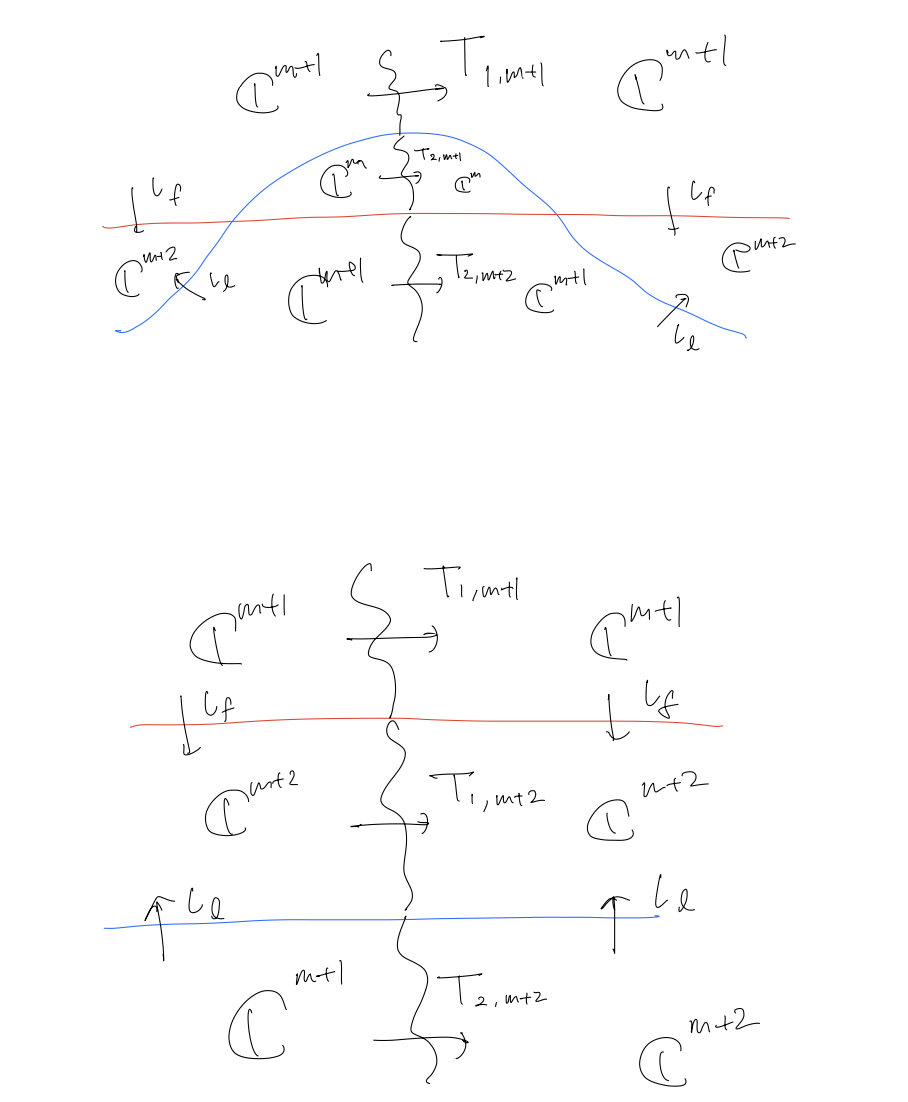 ℂ^{m+1} T_{1,m+1} ℂ^{m+1}
ℂ^m T_{2,m+1} ℂ^m
ι_f ι_f
ℂ^{m+2} ι_ℓ ℂ^{m+1} T_{2,m+2} ℂ^{m+1} ℂ^{m+2}
ι_ℓ
ℂ^{m+1} T_{1,m+1} ℂ^{m+1}
ι_f ι_f
ℂ^{m+2} T_{1,m+2} ℂ^{m+2}
ι_ℓ ι_ℓ
ℂ^{m+1} T_{2,m+2} ℂ^{m+2}